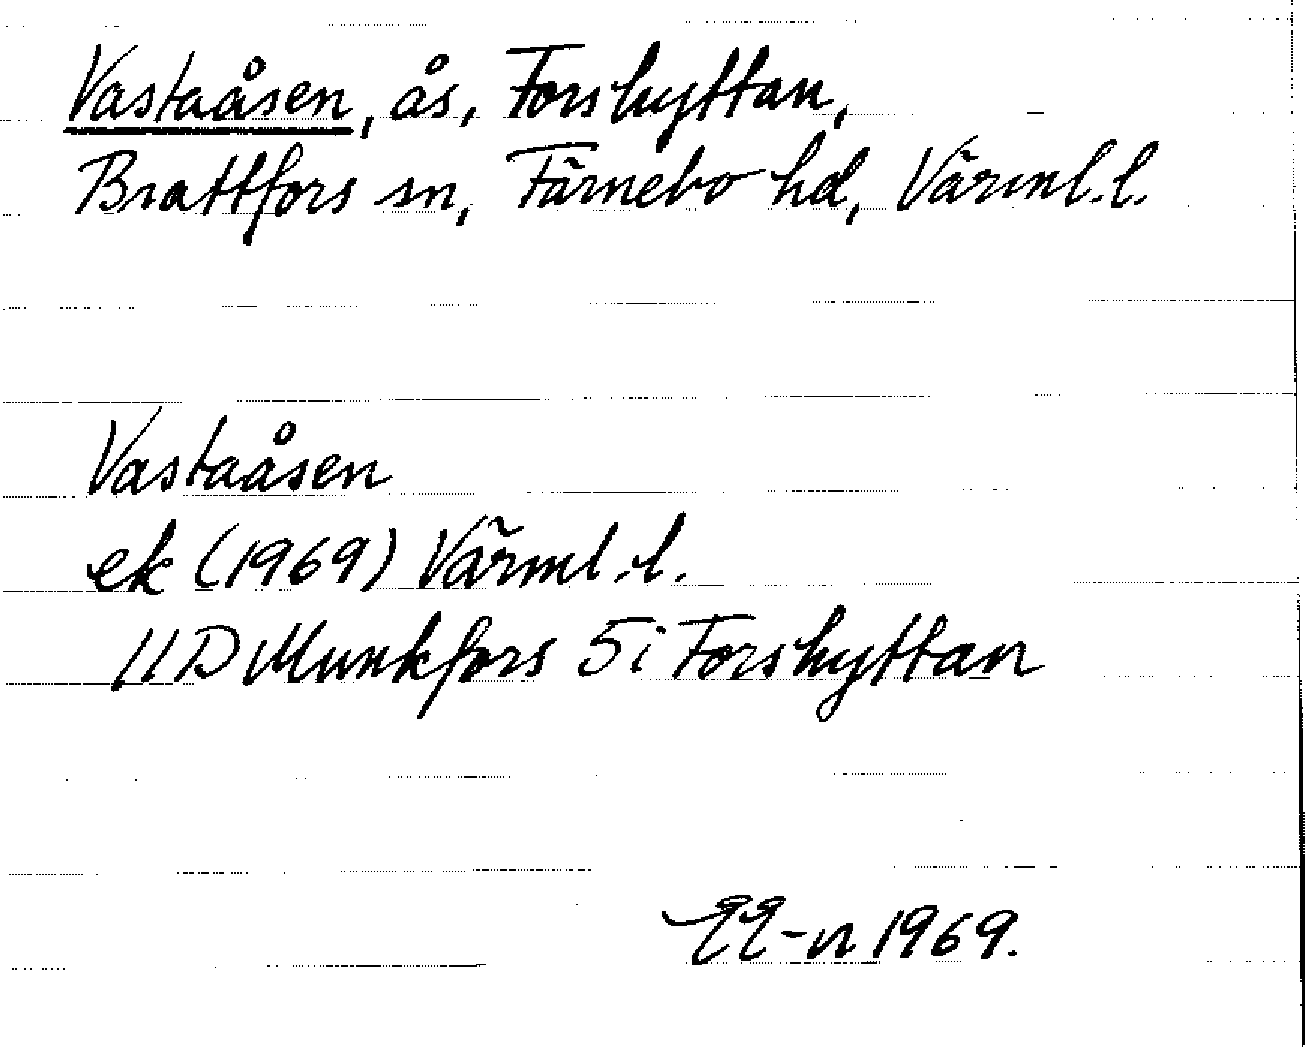 Vastaåsen, ås, Forshyttan,
Brattfors sn, Färnebo hd, Värml.l.
Vastaåsen
ek (1969) Värml.l.
11D Munkfors 5i Forshyttan
1969.